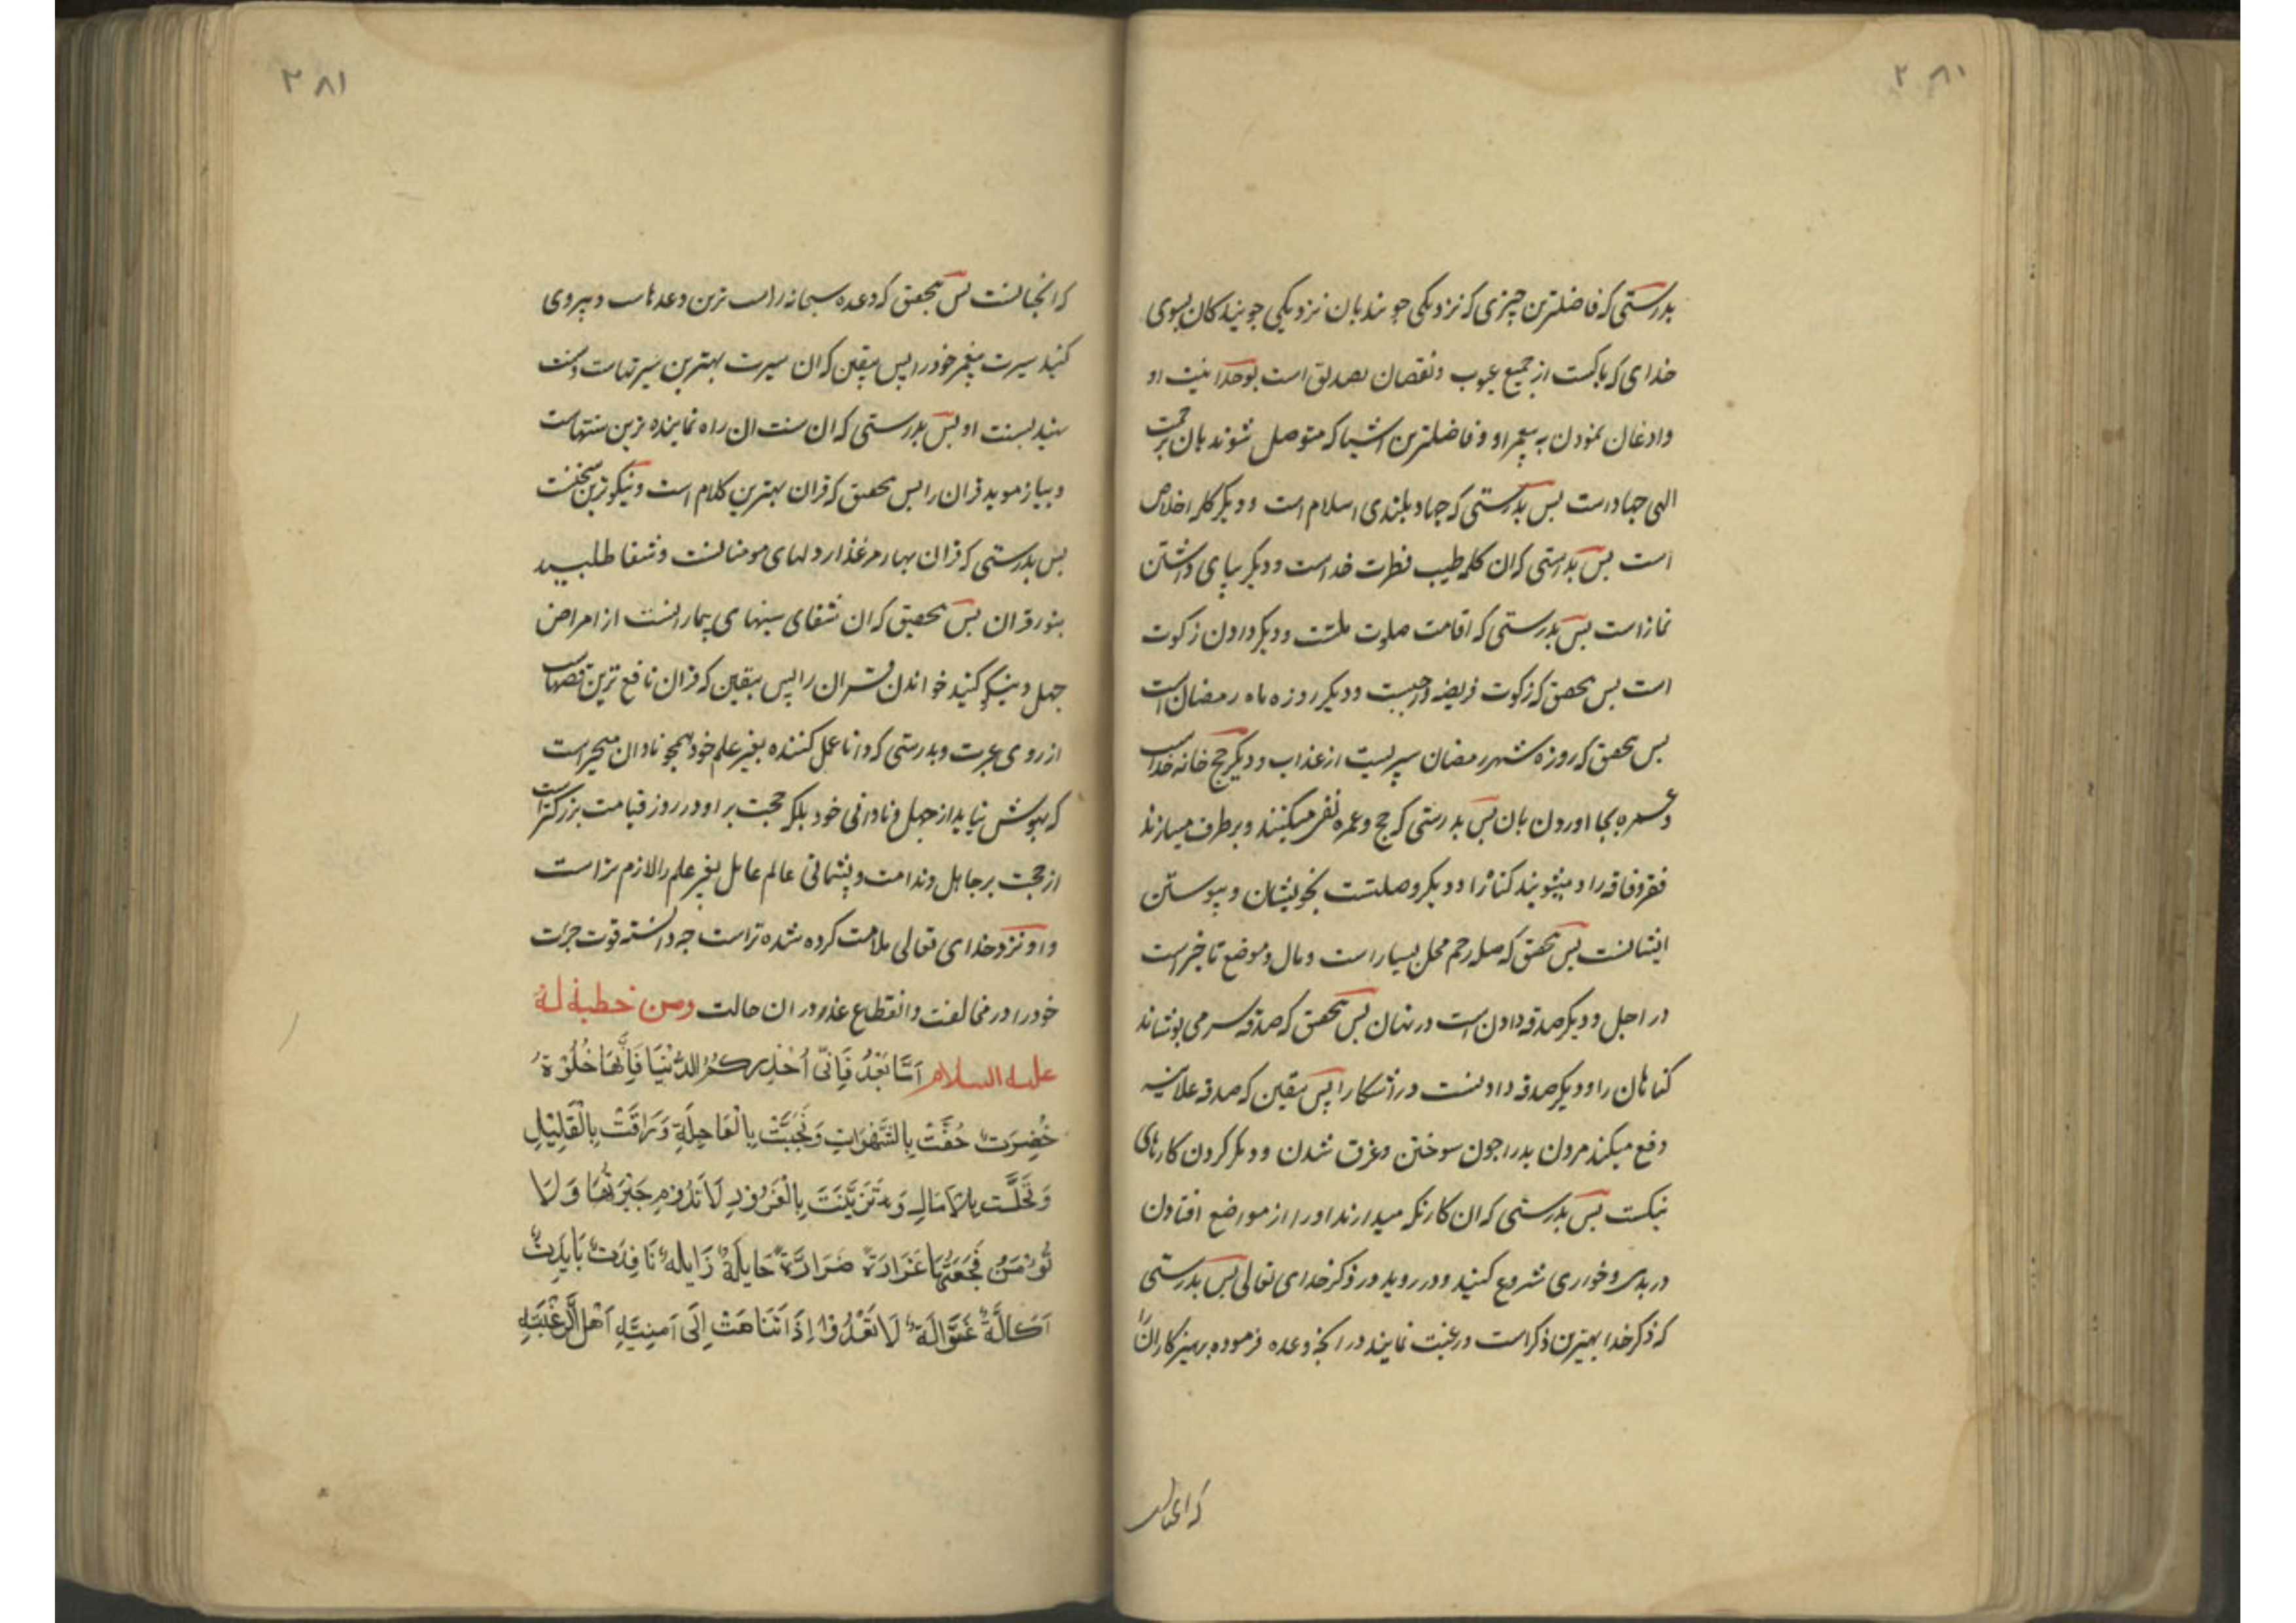 ۲۸۱
بدرستی که فاضلترین چیزی که نزدیکی جویند بان نزدیکی جویندکان بسوی
خدای که پاکست از جمیع عیوب و نقصان تصدیق است بوحدانیت او
واذعان نمودن به پیغمبر او و فاضلترین اشیا که متوصل شوند بان برحمت
الهی جهادست بس بدرستی که جهاد بلندی اسلام است و دیکر کلمه اخلاص
است بس بدرستی که ان کلمه طیب فطرت خداست و دیکر بپای داشتن
نمازاست بس بدرستی که اقامت صلوت ملتست و دیکر دادن زکوت
است بس بتحقیق که زکوت فریضه واجبست و دیکر روزه ماه رمضان است
بس بتحقیق که روزه شهر رمضان سپریست از عذاب و دیکر حج خانه خداست
وعمره بجا اوردن بان بس بدرستی که حج و عمره نفی میکنند و برطرف میسازند
فقر و فاقه را و میشویند کناه را و دیکر وصلتست بخویشان و پیوستن
ایشانست بس بتحقیق که صله رحم محل بسیار است و مال و موضع تاخیر است
در اجل و دیکر صدقه دادن است در نهان بس بتحقیق که صدقه سر می پوشاند
کناهان را و دیکر صدقه دادنست در اشکارا پس بیقین که صدقه علانیه
دفع میکند مردن بد را چون سوختن و غرق شدن و دیکر کردن کارهای
نیکست بس بدرستی که ان کار نکه میدارند او را از مواضع افتادن
در بدی و خواری شروع کنید و در روید در ذکر خدای تعالی بس بدرستی
که ذکر خدا بهترین ذکر است و رغبت نمایند در انچه وعده فرموده پرهیزکاران را
۲۸۱
که انجنانست بس بتحقیق که وعده سبحانه راست ترین وعدهاست و پیروی
کنید سیرت پیغمبر خود را پس بیقین که ان سیرت بهترین سیرتهاست و سنت
نهید بسنت او بس بدرستی که ان سنت ان راه نماینده ترین سنتهاست
و بیاموزید قران را بس بتحقیق که قران بهترین کلام است و نیکوترین سخنست
بس بدرستی که قران بهار مرغزار دلهای مومنانست و شفا طلبید
بنور قران بس بتحقیق که ان شفای سینهای بیمارانست از امراض
جهل و نیکو کنید خواندن قران را پس بیقین که قران نافع ترین قصهاست
از روی عبرت و بدرستی که دانا عمل کننده بغیر علم خود همچو نادان متحیر است
که بهوش نیاید از جهل و نادانی خود بلکه حجت بر او در روز قیامت بزرکتر است
از حجت بر جاهل و ندامت و پشیمانی عالم عامل بغیر علم را لازم تر است
واو نزد خدای تعالی ملامت کرده شده تر است چه دانسته قوت جرئت
خود را در مخالفت و انقطاع عذر در ان حالت ومن خطبة له
علیه السلام اَمَّا بَعْدُ فَاِنّی اُحَذِّرکُمُ الدُّنْیَا فَاِنَّهَا حُلْوَةٌ
خَضِرَتٌ حُفَّتْ بِالشَّهَوَاتِ وَتَحَبَّبَتْ بِالْعَاجِلَةِ وَرَاقَتْ بِالْقَلِیْلِ
وَتَحَلَّت بِالاٰمَالِ وَتَزَیَّنَتَ بِالْغُرُوْرِ لَا تَدُوْمِ حَبْرَتُهَا وَلَا
تُوْمَنُ فَجْعَتُهَا غَرَارَةٌ ضَرَارَةٌ حَایلَةٌ زَایلهٌ نَافِدَتٌ بَایدَتٌ
اَکَالَةٌ غَوَّالَةٌ لَا تَعْدُوْا اِذَا تَنَاهَتْ اِلَی اَمنِیَّةِ اَهْلِ الرَّغْبَةِ